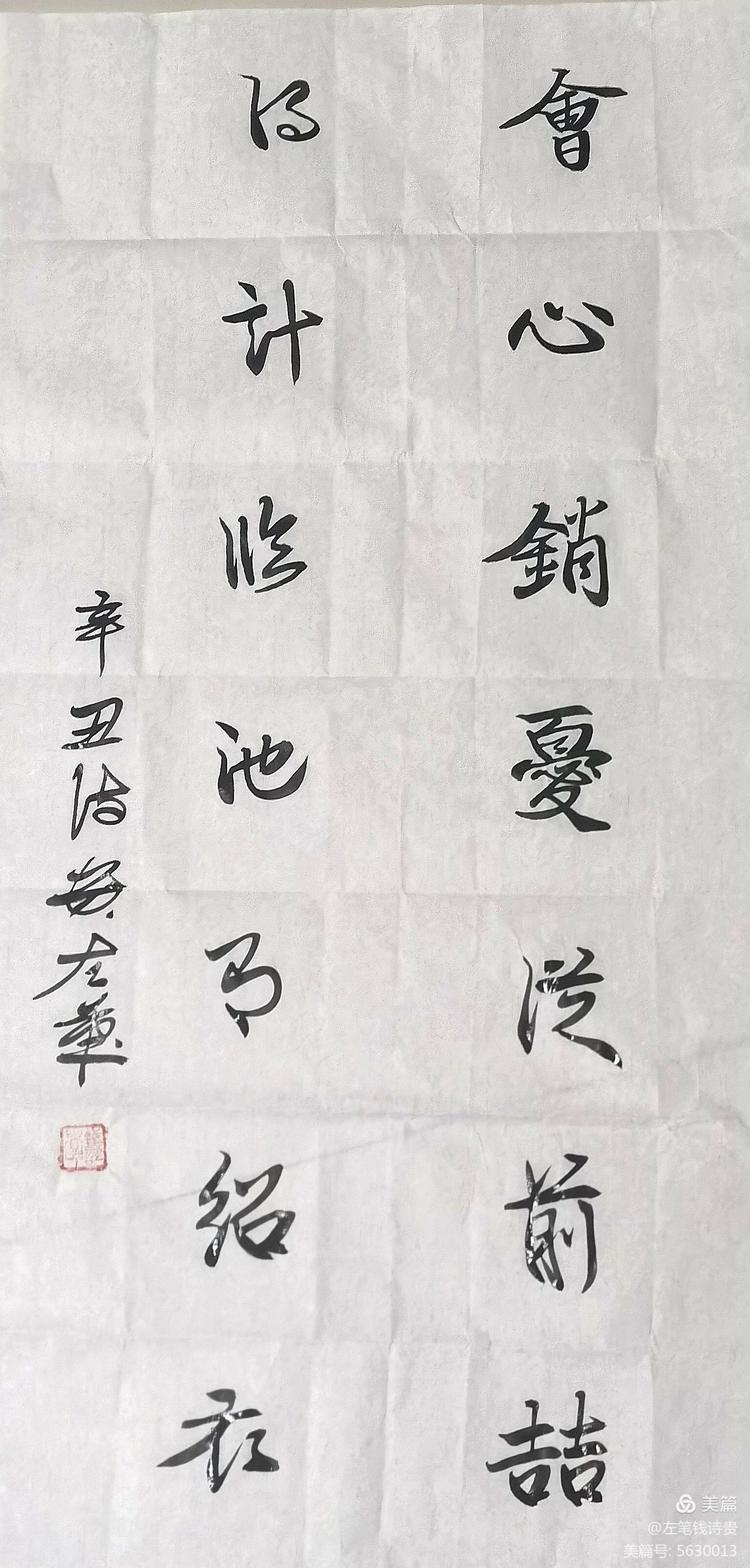 會心銷憂從前喆
得計臨池紹
辛丑诗贵左筆
美篇
@左笔钱诗贵
美篇号: 5630013